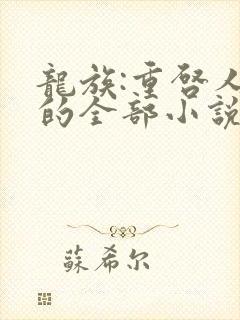 龍族:重啓人
的全部小說
蘇希尔